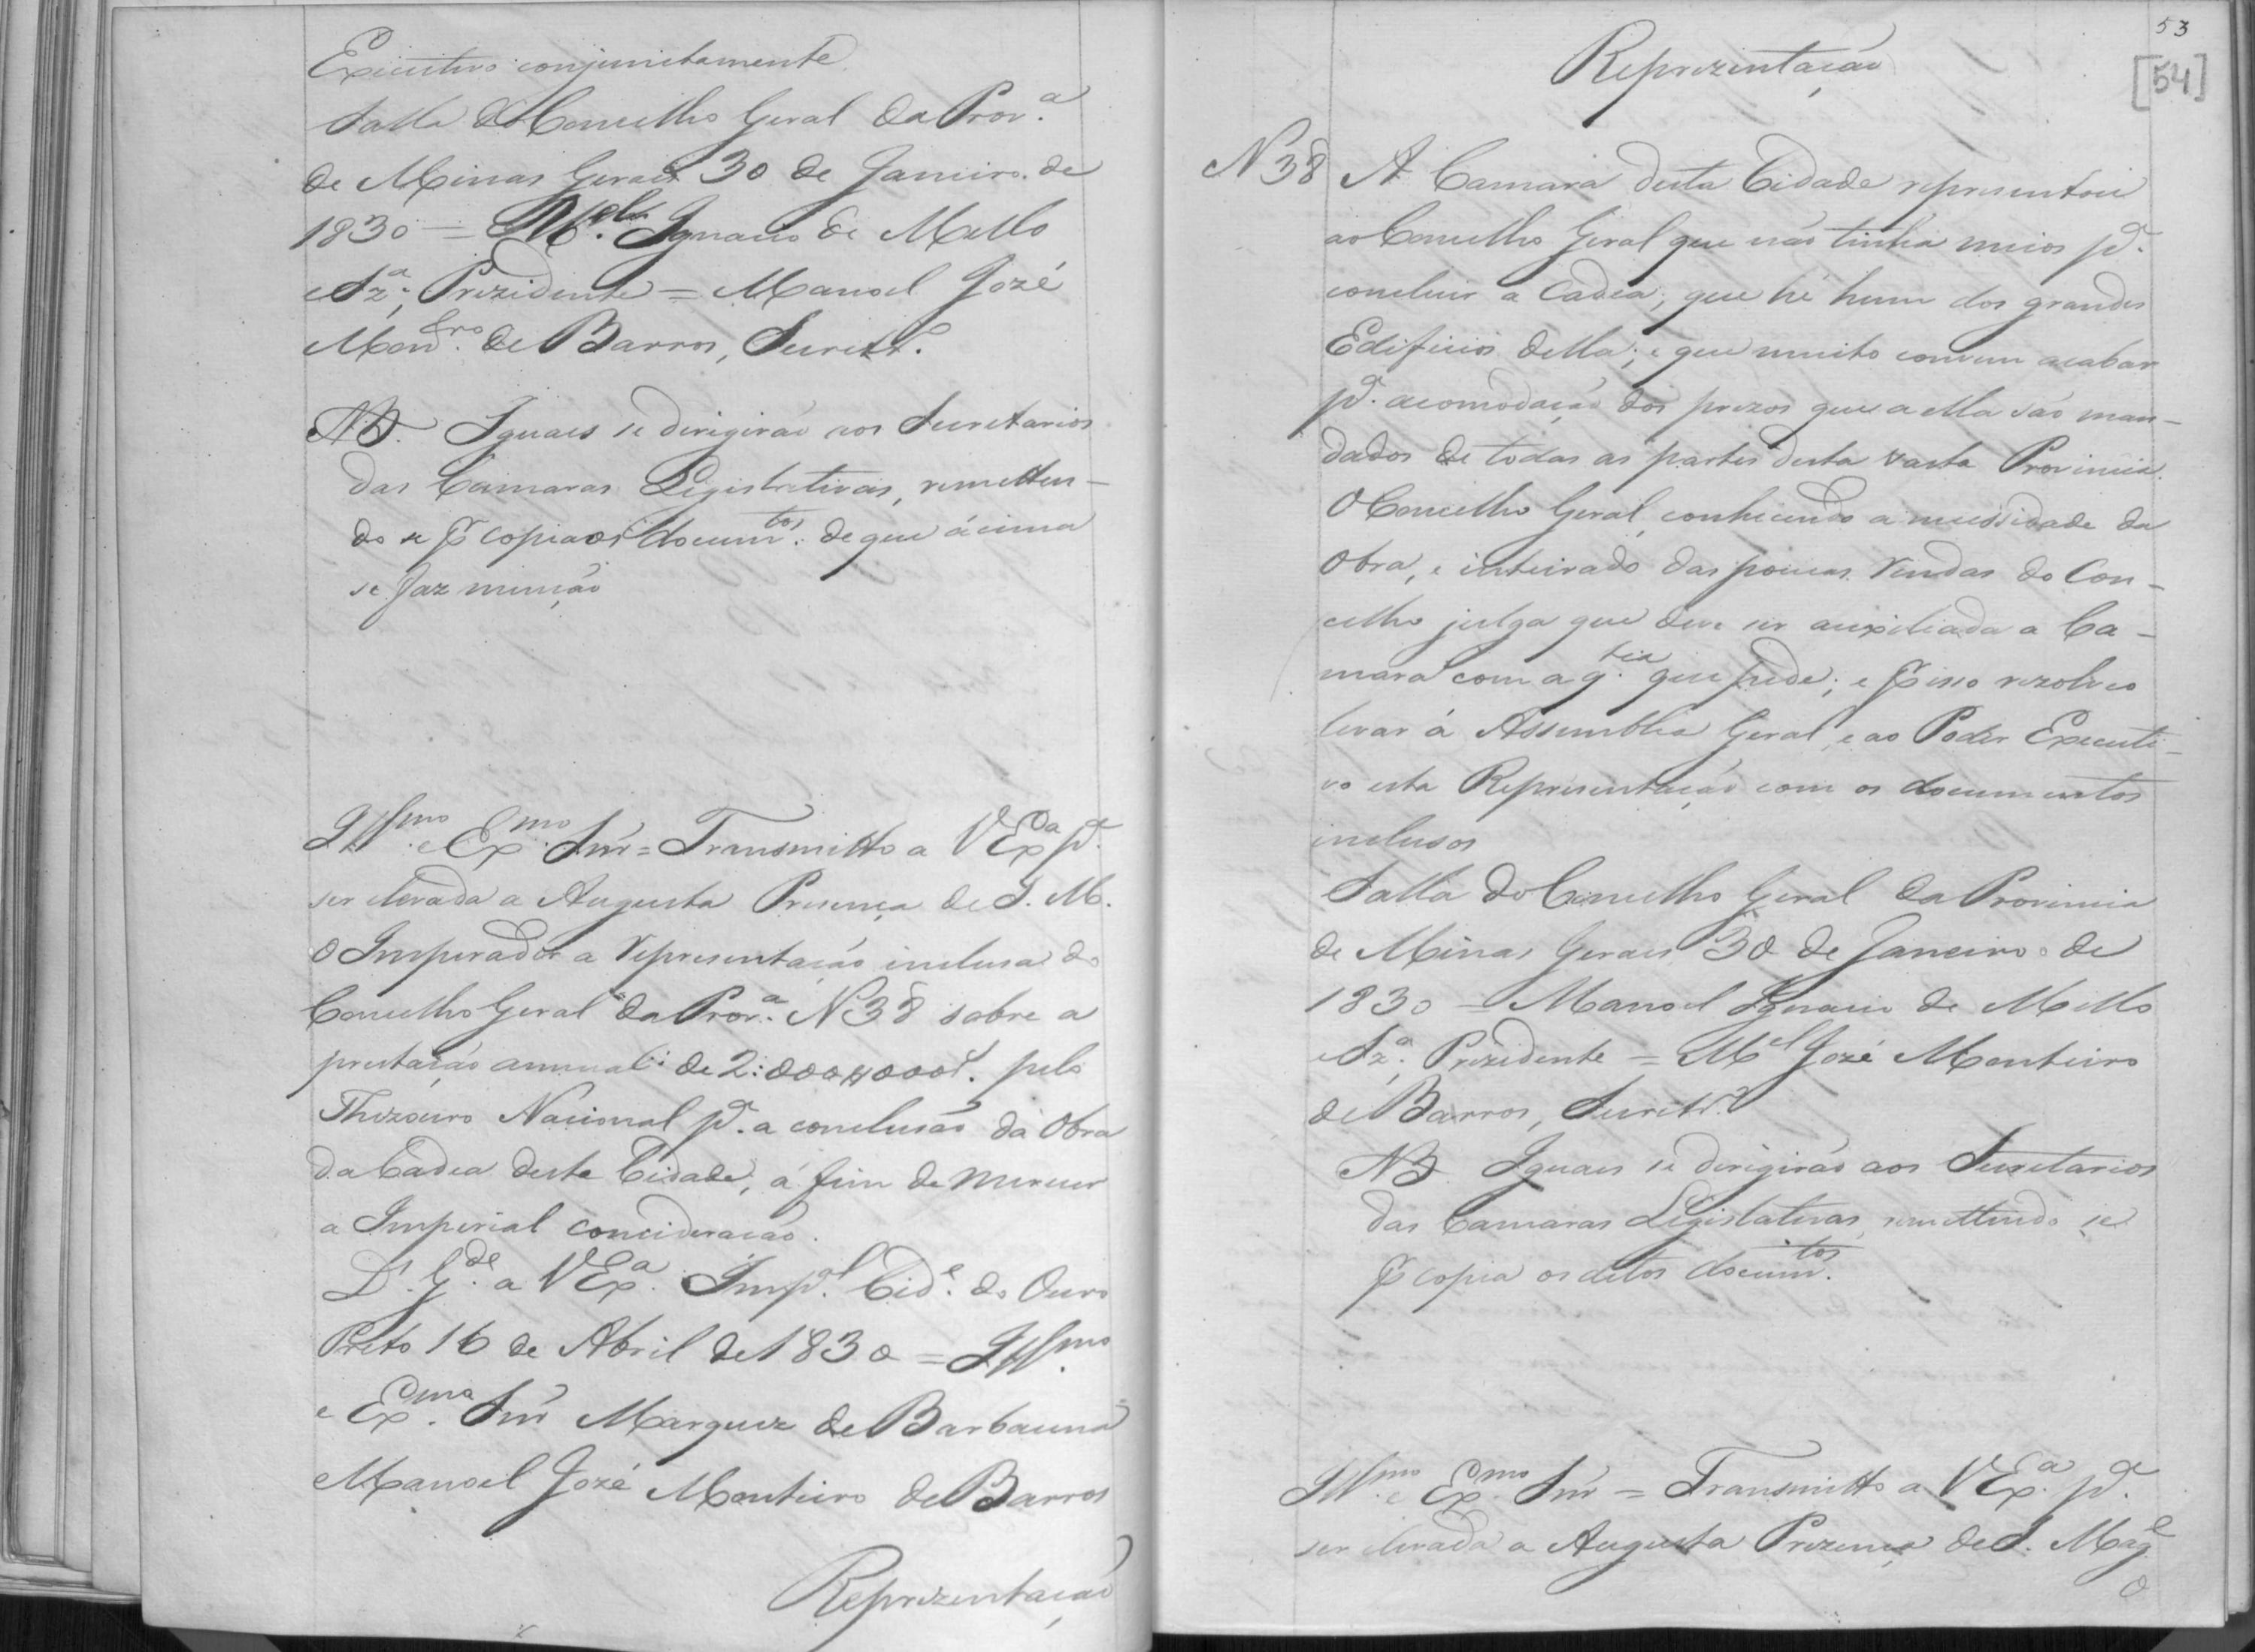 Executivo conjunctamente
Salla do Concelho Geral da Prov.ª
de Minas Geraes 30 de Janeiro de
1830 = M.el Ignacio de Mello
e Sz.ª, Prezidente = Manoel Jozé
Mont.ro de Barros, Secretr.º
NB. Iguaes se dirigirão aos Secretarios
das Camaras Legislativas, remetten-
do se pr copia os docum.tos de que ácima
se faz menção
Ill.mo e Ex.mo Snr = Transmitto a V Ex.ª p.ª
ser levada a Augusta Presença de S. M.
O Imperador a representação inclusa do
Concelho Geral da Prov.ª N 38 sobre a
prestação annual de 2:000$000 r.s pelo
Thezouro Nacional p.ª a conclusão da Obra
da Cadea desta Cidade, á fim de merecer
a Imperial concideração.
D.s G.de a V Ex.ª Imp.al Cid.e do Ouro
Preto 16 de Abril de 1830 = Ill.mo
e Ex.mo Snr Marquez de Barbacena
Manoel Jozé Monteiro de Barros
Reprezentação
53
[54]
Reprezentação
N 38 A Camara desta Cidade representou
ao Concelho Geral que não tinha meios p.ª
concluir a Cadea, que hé hum dos grandes
Edificios della; e que muito convem acabar
p.ª acomodação dos prezos que a ella são man-
dados de todas as partes desta vasta Provincia.
O Concelho Geral, conhecendo a necessidade da
Obra, e inteirado das poucas rendas do Con-
celho julga que deve ser auxiliada a Ca-
mara com a q.tia que pede; e pr isso rezolveo
levar á Assemblea Geral, e ao Poder Executi-
vo esta Representação com os documentos
inclusos
Salla do Concelho Geral da Provincia
de Minas Geraes 30 de Janeiro de
1830 = Manoel Ignacio de Mello
e Sz.ª, Prezidente = M.el Jozé Monteiro
de Barros, Secretr.º
NB Iguaes se dirigirão aos Secretarios
das Camaras Legislativas, remettendo se
pr copia os ditos docum.tos
Ill.mo e Ex.mo Snr = Transmitto a V Ex.ª p.ª
ser levada a Augusta Prezença de S. Mag.e
O